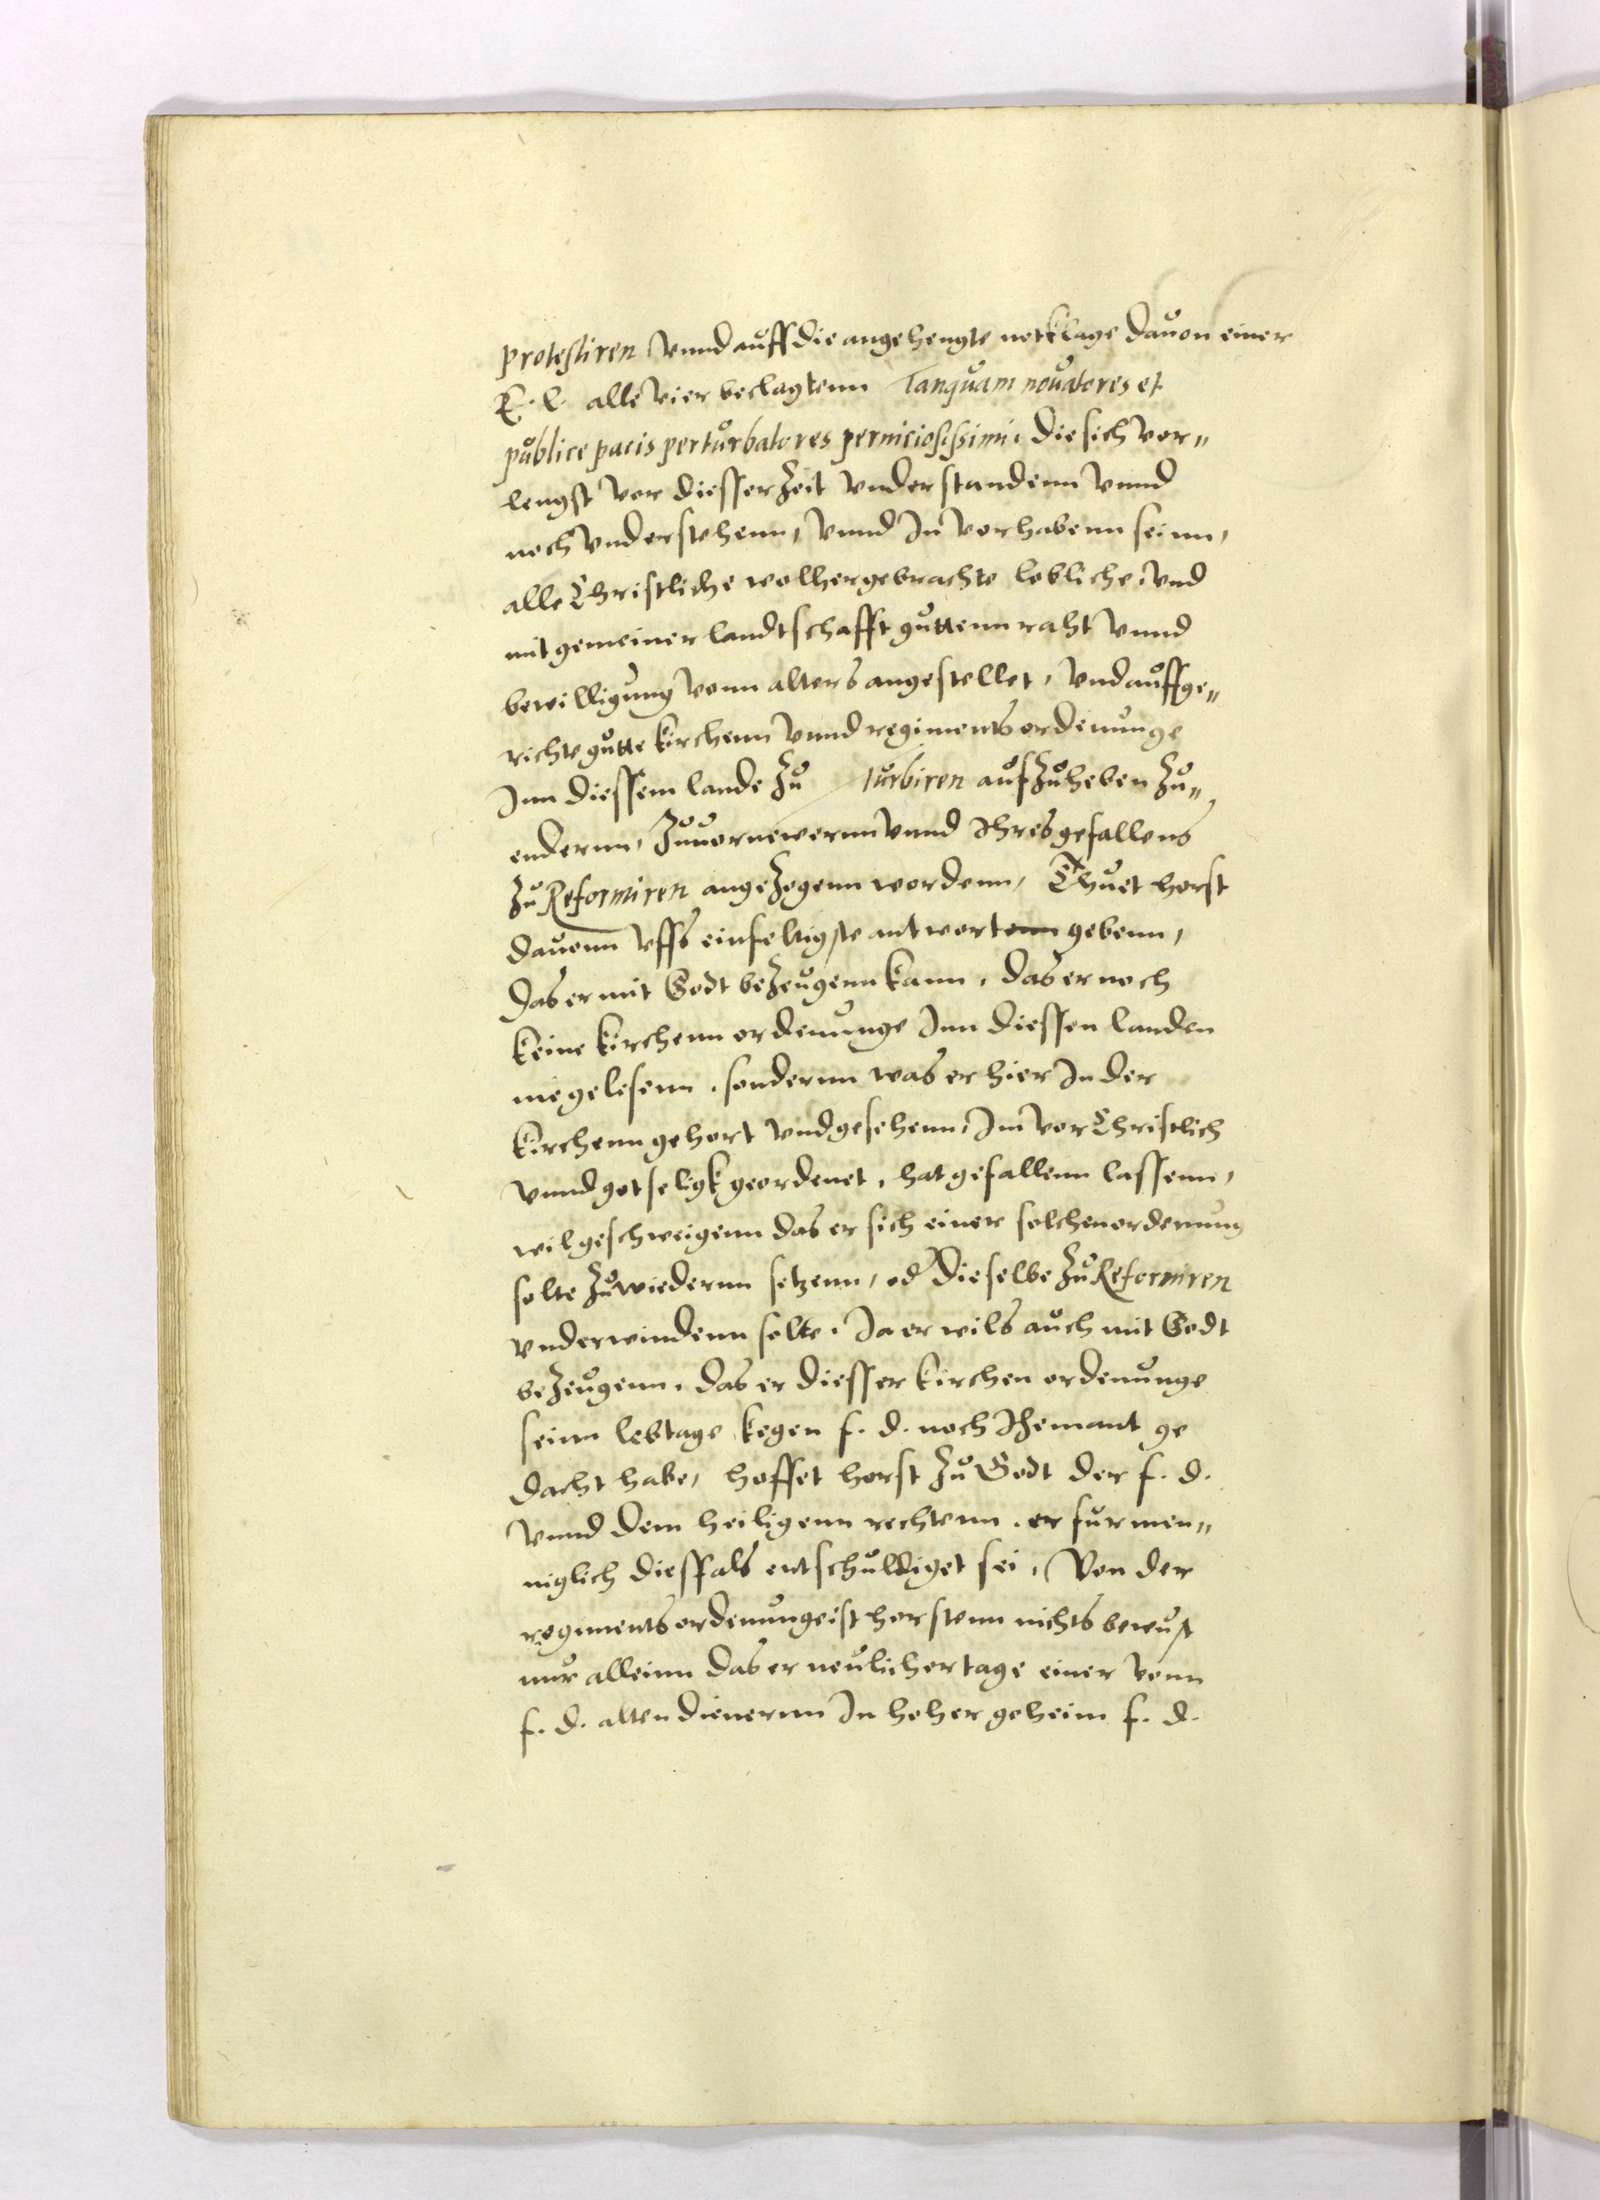 protestiren vnnd auff die angehengte notklage dauon einer
E. L. alle vier beclagtenn Tanquam nouatores et
publice pacis perturbatores perniciosissimi, die sich vor„
lengst vor diesser Zeit vnderstandenn vnnd
noch vnderstehenn, vnnd In vorhabenn seinn,
alle Christliche wolhergebrachte lobliche, vnd
mit gemeiner landtschafft guttenn raht vnnd
bewilligung vonn alters angestellet, vnd auffge„
richte gutte kirchenn vnnd regiments ordenunge
Inn diessem lande Zu turbiren aufZuheben Zu„
endernn, Zuuornewernn vnnd Ihres gefallens
Zu Reformiren angeZogenn wordenn, Thuet horst
dauonn vffs einfeltigste antwortenn gebenn,
Das er mit Godt beZeugenn kann, das er noch
keine kirchenn ordenunge Inn diessen landen
nie gelesenn, sondernn was er hier In der
kirchenn gehort vnd gesehenn, Im vor Christlich
vnnd gotseligk geordenet, hat gefallenn lassenn,
wil geschweigenn das er sich einer solchen ordenung
solte Zuwiedernn setzenn, od dieselbe Zu Reformiren
vnderwindenn solte, Ja er wils auch mit Godt
beZeugenn, das er diesser kirchen ordenunge
seinn lebtage kegen f. d. noch Ihemant ge
dacht habe, hoffet horst Zu Godt der f. d.
vnnd dem heiligenn rechtenn, er fur men„
niglich diesfals entschuldiget sei, Von der
regiments ordenunge ist horstenn nichts bewust
nur alleinn das er neulicher tage einer vonn
f. d. alten dienernn In hoher geheim f. d.